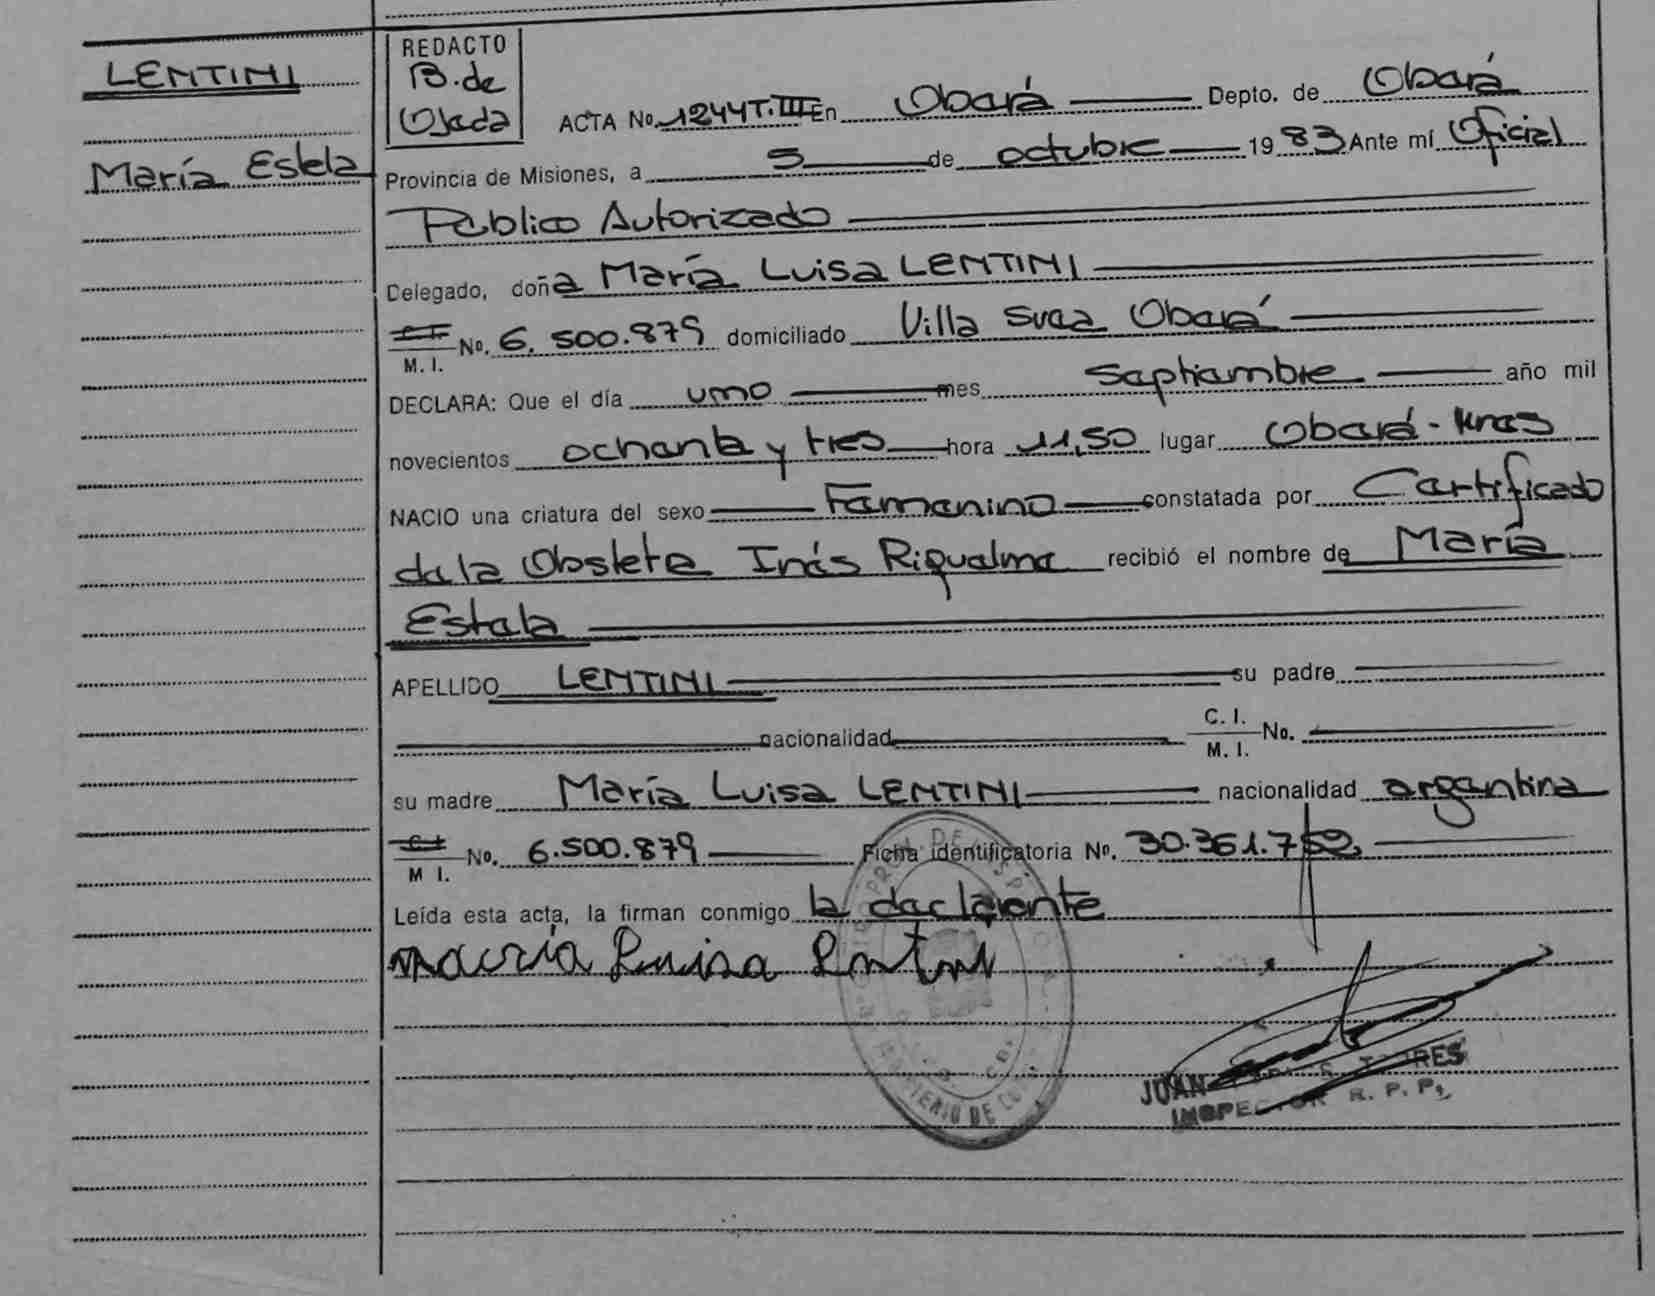 LENTINI
María Estela
REDACTO
B. de
Ojeda
ACTA No. 1244 T. III En Oberá Depto. de Oberá
Provincia de Misiones, a 5 de octubre 1983 Ante mí Oficial
Público Autorizado
Delegado, doña María Luisa LENTINI
C. I.
M. I. No. 6.500.879 domiciliado Villa Svea Oberá
DECLARA: Que el día uno mes septiembre año mil
novecientos ochenta y tres hora 11,50 lugar Oberá - Mnes
NACIO una criatura del sexo Femenino constatada por Certificado
de la Obstetra Inés Riquelme recibió el nombre de María
Estela
APELLIDO LENTINI su padre
nacionalidad C. I.
M. I. No.
su madre María Luisa LENTINI nacionalidad argentina
C. I.
M I. No. 6.500.879 Ficha identificatoria No. 30.361.752
Leída esta acta, la firman conmigo la declarante
maria Luisa Lentini
JUAN TORRES
INSPECTOR R. P. P.